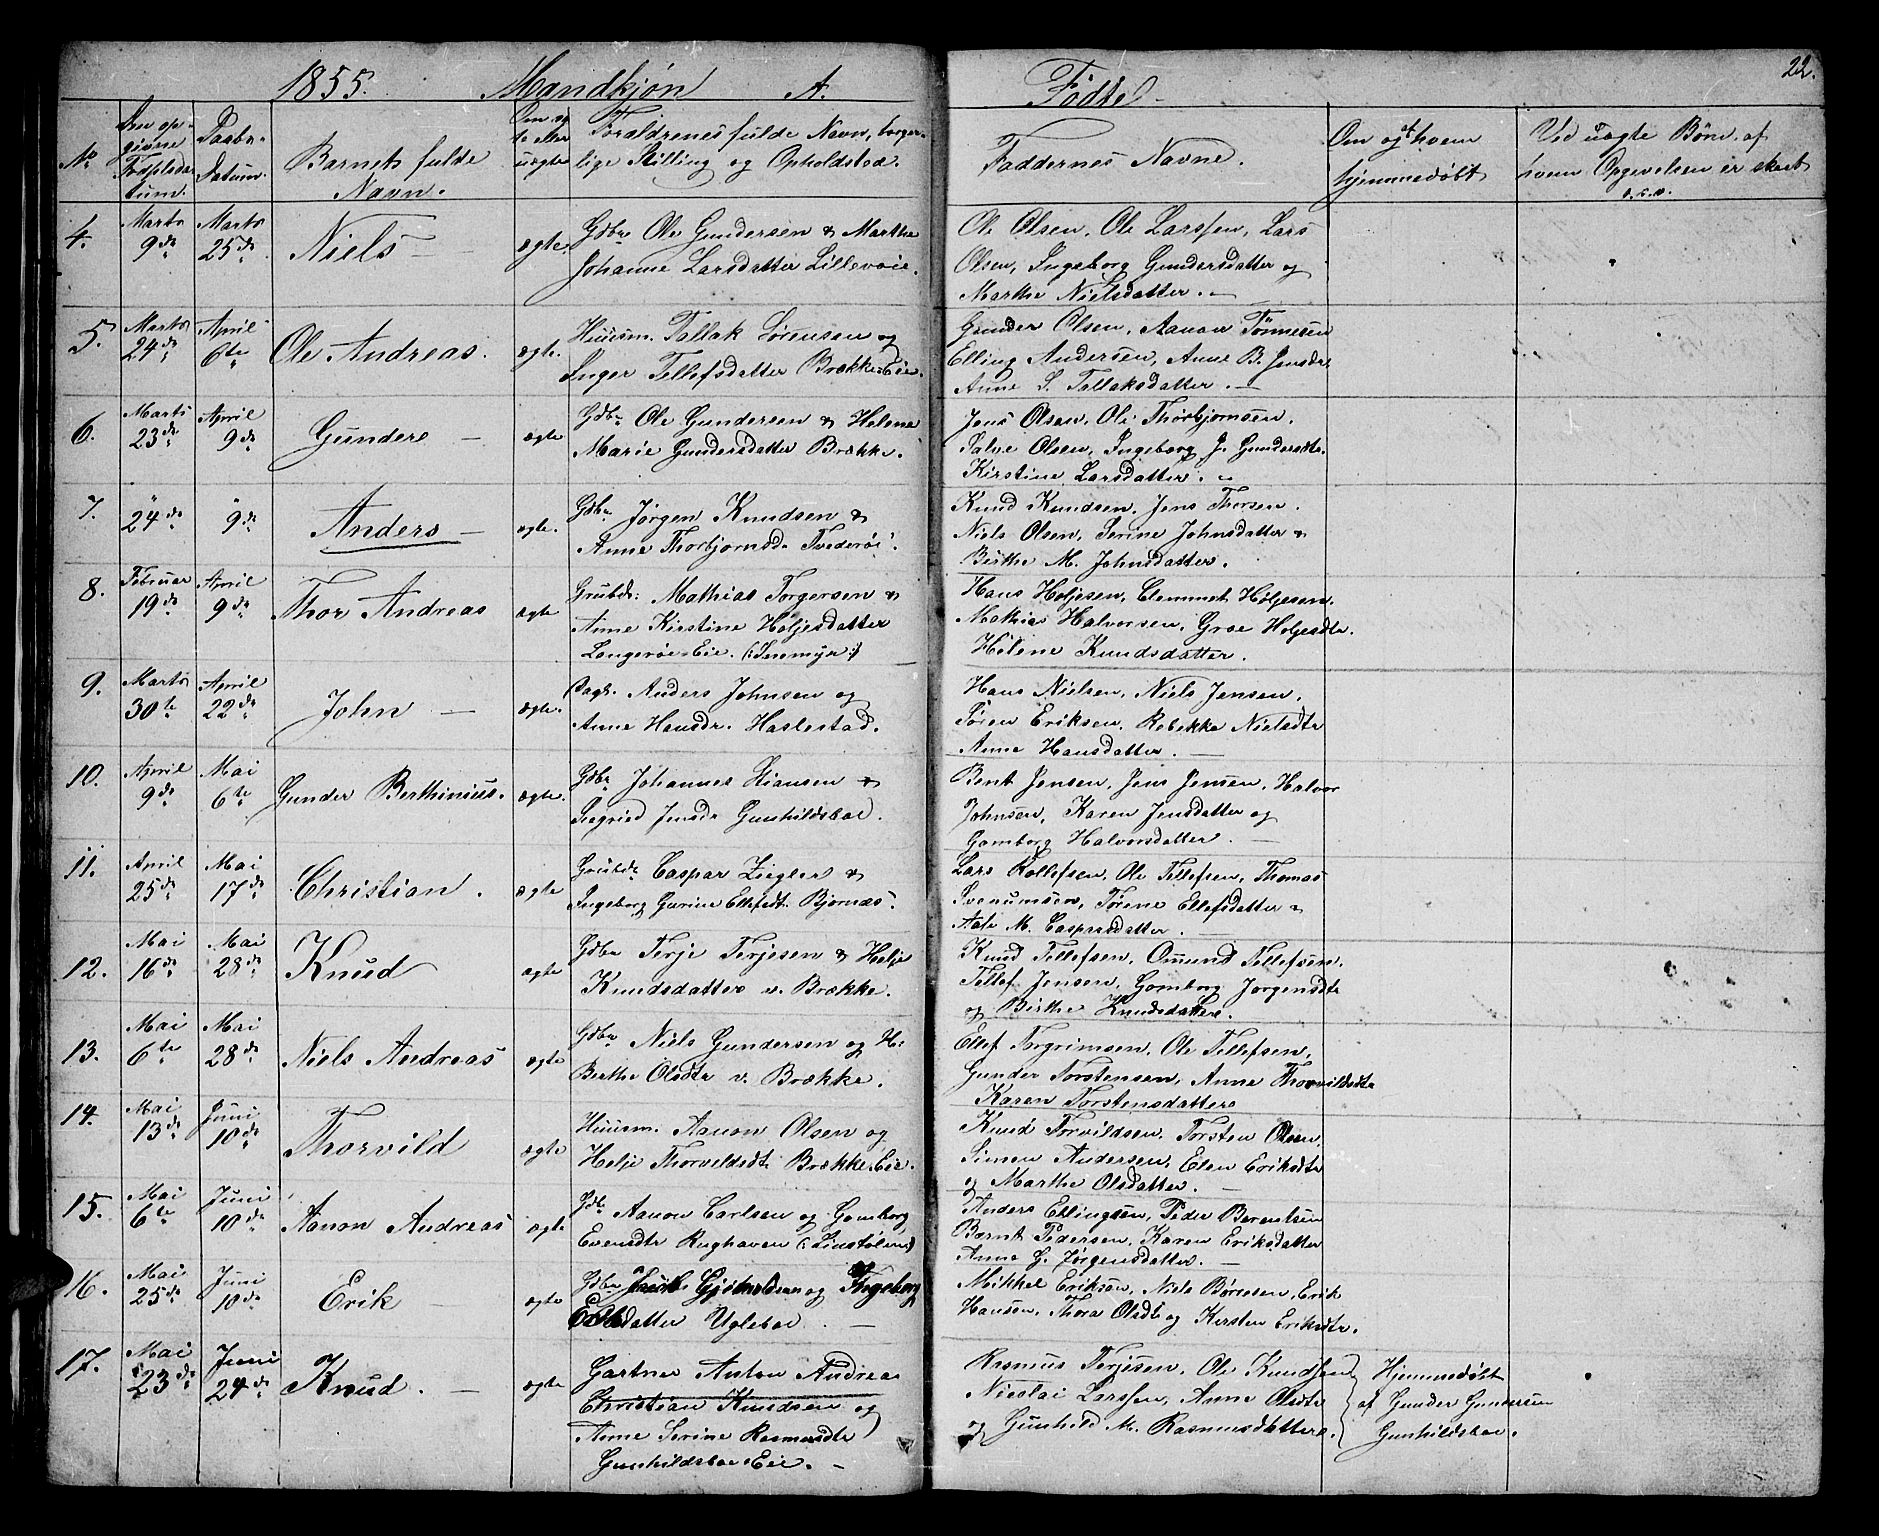 1855. Mandkjøn A. Fødte 22.
No Den opgivne Fødselsdatum. Daabs-Datum. Barnets fulde Navn. Om ægte eller uægte Forældrenes fulde Navn, borgerlige Stilling og Opholdsted. Faddernes Navne. Om og af hvem hjemmedøbt Ved uægte Børn, af hvem Opgivelsen er skeet o.s.v.
4. Marts 9de Marts 25de Niels ægte. Gdbr Ole Gundersen & Marthe
Johanne Larsdatter Lillevøie.
Ole Olsen, Ole Larssen, Lars
Olsen, Ingeborg Gundersdatter og
Marthe Nielsdatter.
5. Marts 24de April 6te Ole Andreas. ægte. Huusm. Tallak Sørensen og
Inger Tellefsdatter Brække Eie.
Gunder Olsen, Aanon Tønnesen
Elling Andersen, Anne B. Jensdr.
Anne S. Tallaksdatter.
6. Marts 23de April 9de Gunder ægte Gdbr Ole Gundersen & Helene
Marie Gundersdatter Brække.
Jens Olsen, Ole Thorbjornsen.
Salve Olsen, Ingeborg J. Gundersdtr.
Kirstine Larsdatter.
7. " 24de " 9de Anders ægte. Gdbr Jørgen Knudsen &
Anne Thorbjornsd. Tvederøi.
Knud Knudsen, Jens Thorsen.
Niels Olsen, Serine Johnsdatter &
Birthe M. Johnsdatter.
8. Februar 19de April 9de Thor Andreas ægte Grubdr: Mathias Torgersen &
Anne Kirstine Holjesdatter
Langerøe Eie. (:Snemyr:)
Hans Holjesen, Clemmet Holjesen.
Mathias Halvorsen, Groe Holjesdtr.
Helene Knudsdatter.
9. Marts 30te April 22de John ægte. Dagl. Anders Johnsen og
Anne Hansdr. Haslestad.
Hans Nielsen, Niels Jensen,
Søren Eriksen, Rebekke Nielsdtr
Anne Hansdatter.
10. April 9de Mai 6te Gunder Berthinius. ægte. Gdbr Johannes Hansen &
Siegried Jensdr Gunhildsboe.
Bent Jensen, Jens Jensen, Halvor
Johnsen, Karen Jensdatter og
Gomborg Halvorsdatter.
11. April 25de Mai 17de Christian. ægte Grubdr Caspar Ziegler &
Ingeborg Gurine Ellefsdt. Bjornæs.
Lars Rollefsen, Ole Tellefsen, Thomas
Svenumsen, Tørene Ellefsdatter &
Aale M. Casparsdatter.
12. Mai 16de Mai 28de Knud ægte Gdbr Terje Terjesen & Helje
Knudsdatter v. Brække.
Knud Tellefsen, Omund Tellefsen.
Tellef Jensen, Gomborg Jorgensdtr
og Birthe Knudsdatter.
13. Mai 6te Mai 28de Niels Andreas ægte Gdbr Niels Gundersen og H.
Berthe Olsdtr v. Brække.
Ellef Torgrimsen, Ole Tellefsen,
Gunder Torstensen, Anne Thorvildsdtr
Karen Torstensdatter
14. Mai 13de Juni 10de Thorvild ægte Huusm. Aanon Olsen og
Helje Thorvildsdt. Brække Eie.
Knud Torvildsen, Torsten Olsen,
Simen Andersen, Elen Eriksdtr
og Marthe Olsdatter.
15. Mai 6te Juni 10de Aanon Andreas ægte Gdbr Aanon Carlsen og Gomborg
Evensdtr Rughaven (:Linstølen:)
Anders Ellingsen, Peder Berentsen
Bernt Pedersen, Karen Eriksdatter
Anne G. Jørgensdatter.
16. Mai 25de Juni 10de Erik ægte Gdbr og Ingeborg
datter Ugleboe.
Mikkel Eriksen, Niels Børresen, Erik
Hansen, Thora Olsdtr og Kirsten Eriksdtr.
17. Mai 23de Juni 24de Knud. ægte Gartner Anton Andreas
Christian Knudsen og
Anne Serine Rasmusdtr
Gunhildsboe Eie.
Rasmus Terjesen, Ole Knudsen
Nicolai Larssen, Anne Olsdtr
og Gunhild M. Rasmusdatter.
Hjemmedøbt
af Gunder Gundersen
Gunhildsboe.